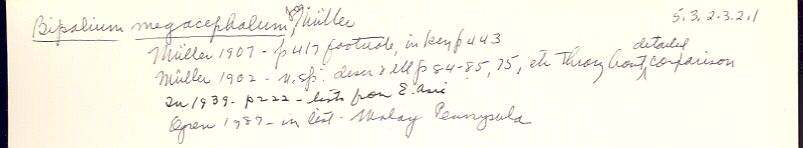 Bipalium megacephalum, Müller 5.3.2.3.2.1
Müller 1907 - p 417 footnote, in key p 443
Müller 1902 - n.sp. descr & ill p 84-85, 75, etc throughout, detailed comparison
1939 - p 222 - lists from E. Asia
Ogren 1987 - in list - Malay Pennysula